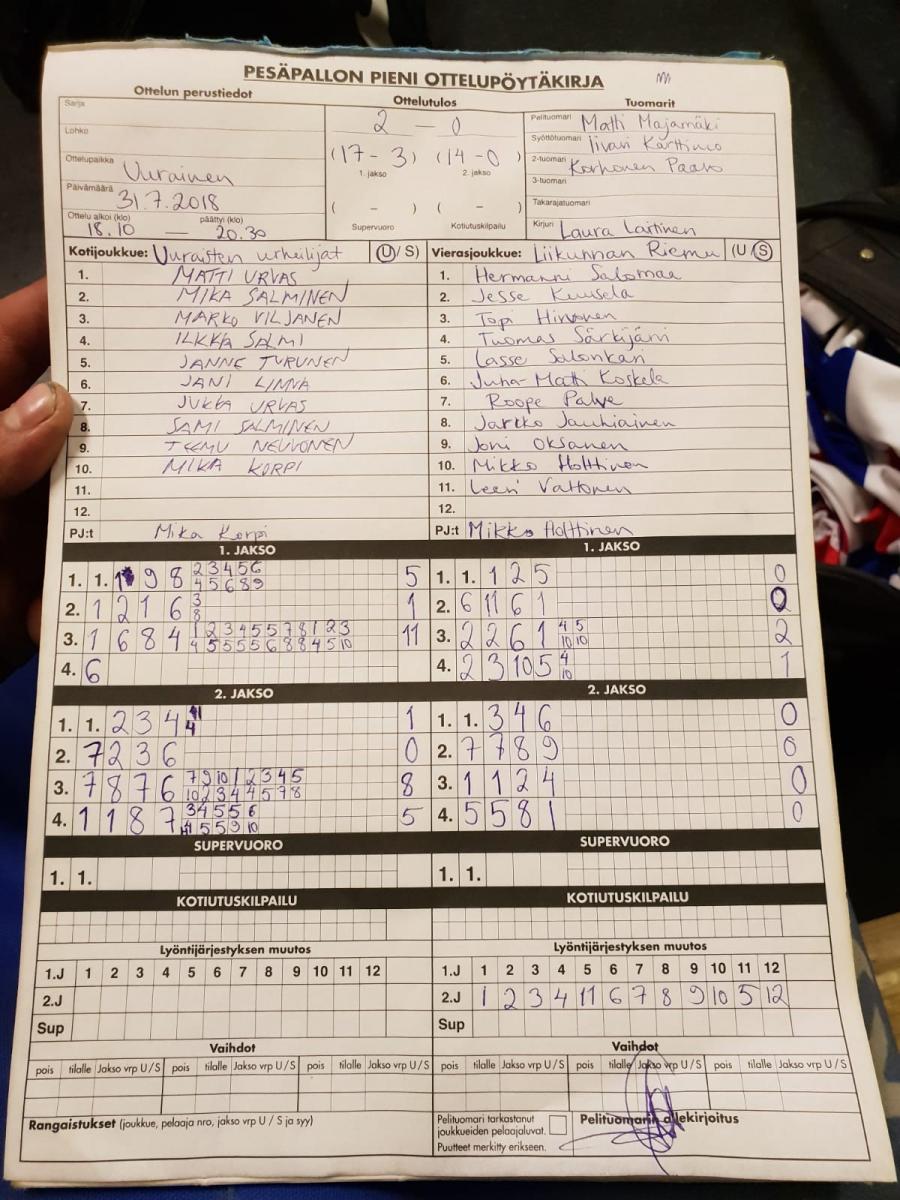 PESÄPALLON PIENI OTTELUPÖYTÄKIRJA
Ottelun perustiedot
Ottelutulos
Tuomarit
Sarja
Lohko
Ottelupaikka Uurainen
Päivämäärä 31.7.2018
Ottelu alkoi (klo) päättyi (klo)
18.10 — 20.30
2 - 0
(17 - 3) (14 - 0)
1. jakso 2. jakso
( - ) ( - )
Supervuoro Kotiutuskilpailu
Pelituomari Matti Majamäki
Syöttötuomari Iivari Karttimo
2-tuomari Korhonen Paavo
3-tuomari
Takarajatuomari
Kirjuri Laura Laitinen
Kotijoukkue: Uuraisten urheilijat (U/S)
1. MATTI URVAS
2. MIKA SALMINEN
3. MARKO VILJANEN
4. ILKKA SALMI
5. JANNE TURUNEN
6. JANI LINNA
7. JUKKA URVAS
8. SAMI SALMINEN
9. TEEMU NEUVONEN
10. MIKA KORPI
11.
12.
PJ:t Mika Korpi
Vierasjoukkue: Liikunnan Riemu (U/S)
1. Hermanni Salomaa
2. Jesse Kuusela
3. Topi Hirvonen
4. Tuomas Särkijärvi
5. Lasse Salonkari
6. Juha-Matti Koskela
7. Roope Palve
8. Jarkko Jauhiainen
9. Joni Oksanen
10. Mikko Holttinen
11. Leevi Vattonen
12.
PJ:t Mikko Holttinen
1. JAKSO
1. 1. 1 9 8 2 3 4 5 6 5
4 5 6 8 9
2. 1 2 1 6 3 1
8
3. 1 6 8 4 1 2 3 4 5 5 7 8 1 2 3 11
4 5 5 5 5 6 8 8 4 5 10
4. 6
1. JAKSO
1. 1. 1 2 5 0
2. 6 11 6 1 0
3. 2 2 6 1 4 5 2
10 10
4. 2 3 10 5 4 1
10
2. JAKSO
1. 1. 2 3 4 1
4
2. 7 2 3 6 0
3. 7 8 7 6 7 9 10 1 2 3 4 5 8
10 2 3 4 4 5 7 8
4. 1 1 8 7 3 4 5 5 6 5
4 5 5 9 10
2. JAKSO
1. 1. 3 4 6 0
2. 7 7 8 9 0
3. 1 1 2 4 0
4. 5 5 8 1 0
SUPERVUORO
1. 1.
SUPERVUORO
1. 1.
KOTIUTUSKILPAILU
KOTIUTUSKILPAILU
Lyöntijärjestyksen muutos
1.J 1 2 3 4 5 6 7 8 9 10 11 12
2.J
Sup
Lyöntijärjestyksen muutos
1.J 1 2 3 4 5 6 7 8 9 10 11 12
2.J 1 2 3 4 11 6 7 8 9 10 5 12
Sup
Vaihdot
pois tilalle Jakso vrp U/S pois tilalle Jakso vrp U/S pois tilalle Jakso vrp U/S
Vaihdot
pois tilalle Jakso vrp U/S pois tilalle Jakso vrp U/S pois tilalle Jakso vrp U/S
Rangaistukset (joukkue, pelaaja nro, jakso vrp U / S ja syy)
Pelituomari tarkastanut
joukkueiden pelaajaluvat.
Puutteet merkitty erikseen.
Pelituomarin allekirjoitus